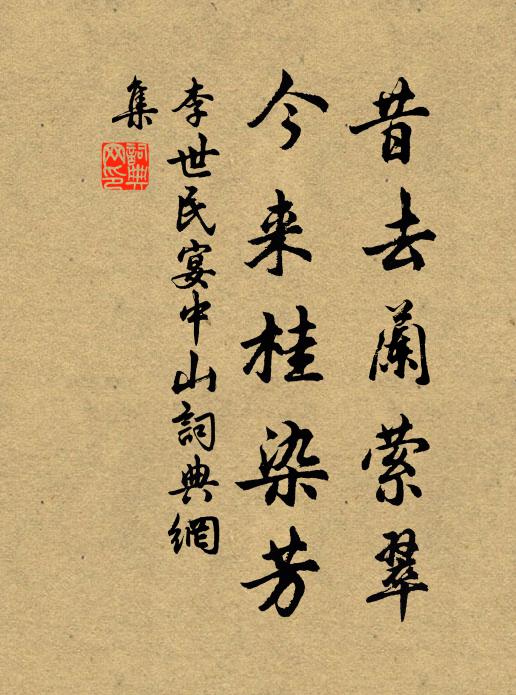 昔去兰萦翠
今来桂染芳
李世民宴中山詞典網
集
詞典网印